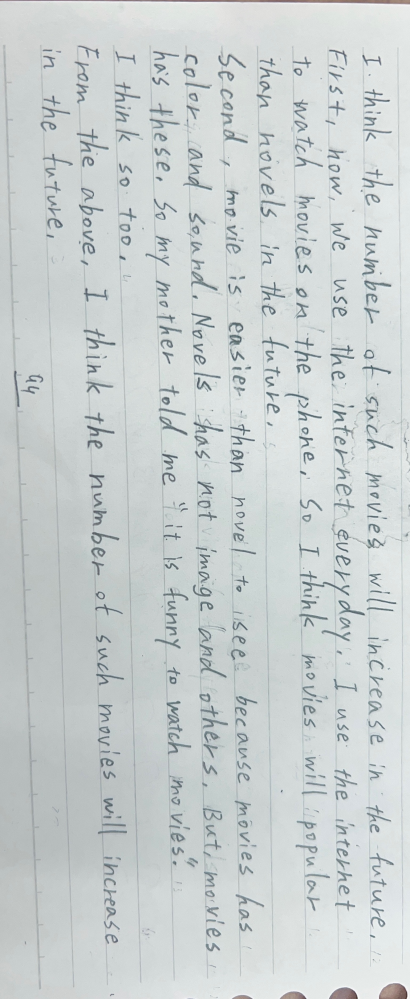 I think the number of such movies will increase in the future.
First, now, we use the internet everyday. I use the internet
to watch movies on the phone. So I think movies will popular
than novels in the future.
Second, movie is easier than novel to see because movies has
color and sound. Novels has not image and others. But, movies
has these. So my mother told me "it is funny to watch movies."
I think so too.
From the above, I think the number of such movies will increase
in the future.
94